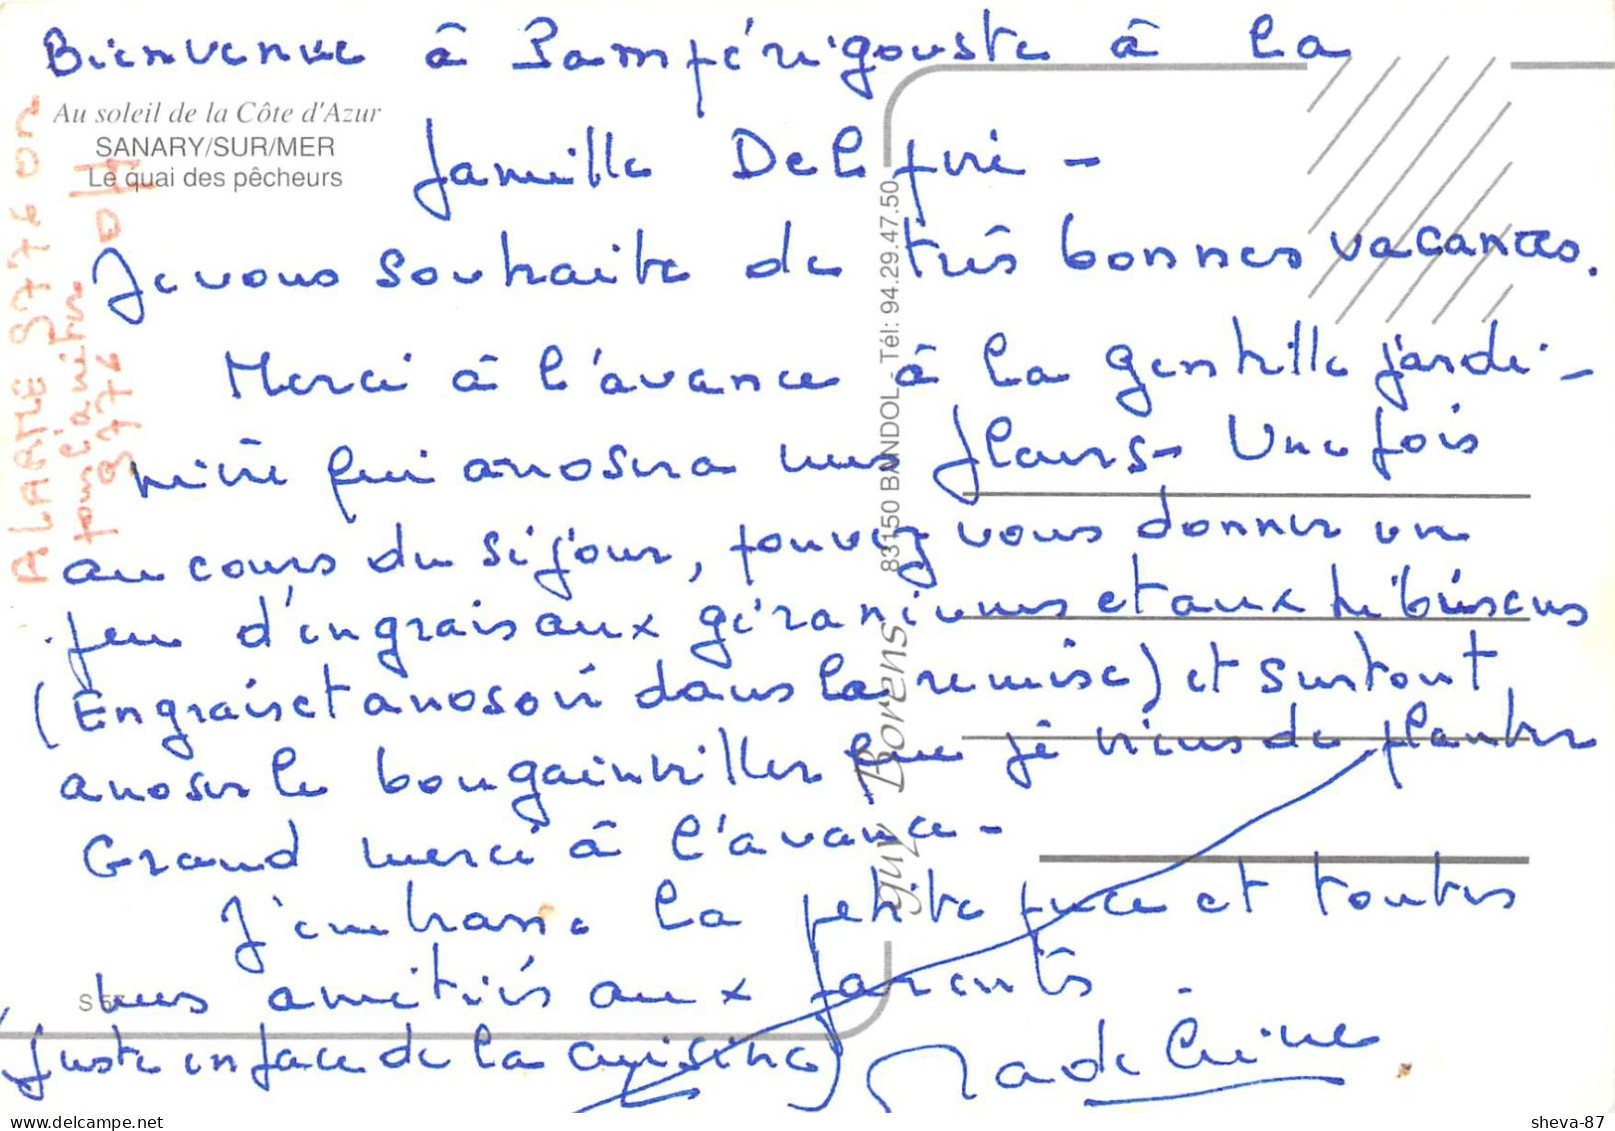 Bienvenue à Pampérigouste à la
Au soleil de la Côte d'Azur
SANARY/SUR/MER
Le quai des pêcheurs
famille Delpuri -
Je vous souhaite de très bonnes vacances.
Merci à l'avance à la gentille jardi-
nière qui arrosera mes fleurs - Une fois
au cours du séjour, pouvez vous donner un
peu d'engrais aux géraniums et aux hibiscus
(Engrais et arrosoir dans la remise) et surtout,
arroser le bougainviller que je viens de planter
Grand merci à l'avance -
J'embrasse la petite puce et toutes
mes amitiés aux parents.
(juste en face de la cuisine)
Madeleine
ALARME 9776 on
pour l'arrêter
9776
83150 BANDOL - Tél: 94.29.47.50
Guy Borens
delcampe.net
sheva-87